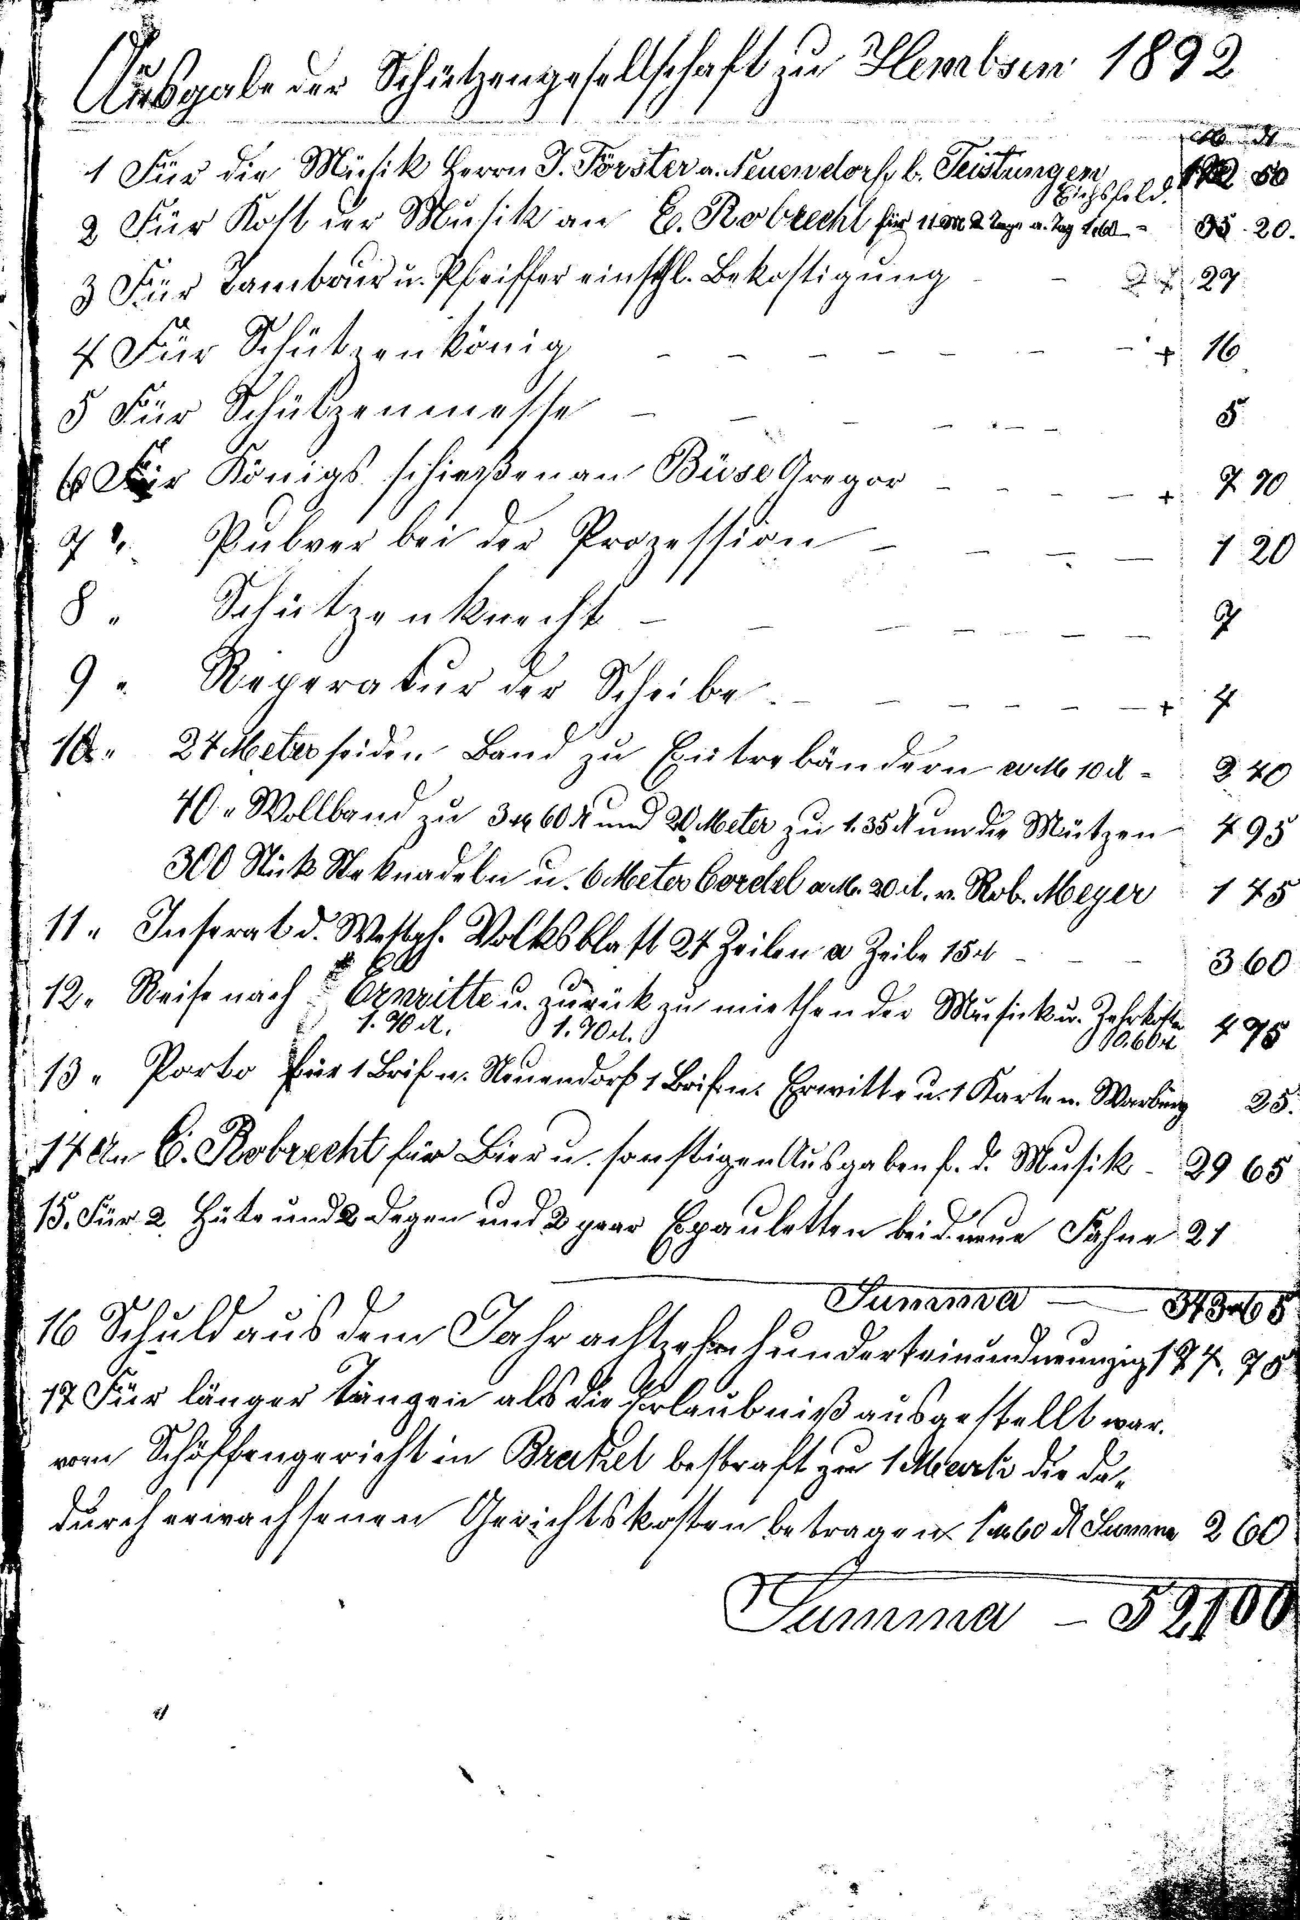 Ausgabe der Schützengesellschaft zu Hembsen 1892
M d
1 Für die Musik Herrn J. Förster a. Neuendorf b. Teistungen 50
Eichsfeld.
2 Für Kost der Musik an C. Robrecht für 11 M 2 Tage a. Tag 1,60 - 35 20.
3 Für Tambour u. Pfeiffer einschl. Bekostigung - - 27
4 Für Schützenkönig - - - - - - - + 16
5 Für Schützenmesse - - - - - - 5
6 Für Königsschießen an Büse Gregor - - - - + 7 70
7 " Pulver bei der Prozession - - - - 1 20
8 " Schützenknecht - - - - - - 7
9 " Reperatur der Scheibe - - - - - - + 4
10 " 24 Meter seiden Band zu Entrebändern a M 10 d - 2 40
40 " Wollband zu 3 M 60 d und 20 Meter zu 1.35 d um die Mützen 4 95
300 Stük Steknadeln u. 6 Meter Cordel a M. 20 d. v. Rob. Meyer 1 45
11 " Inserat d. Westph. Volksblatt 24 Zeilen a Zeile 15 d - - - 3 60
12 " Reise nach Erwitte u. zurük zu miethen der Musick u. Zehrkosten 4 75
1.70 d. 1.70 d. 0.60 d
13 " Porto für 1 Brif n. Neuendorf 1 Brif n. Erwitte u. 1 Karte n. Warburg 25.
14 An C. Robrecht für Bier u. sonstigen Ausgaben f. d. Musik - 29 65
15. Für 2 Hüte und 2 Degen und 2 paar Epauletten bei d. neue Fahne 21
Summa - 343 65
16 Schuld aus dem Jahr achtzehnhunderteinundneunzig 174. 75
17 Für länger Tanzen als die Erlaubniß ausgestellt war.
vom Schöffengericht in Brakel bestraft zu 1 Mark die da-
durch erwachsenen Gerichtskosten betragen 1 M 60 d Summe 2 60
Summa - 521 00